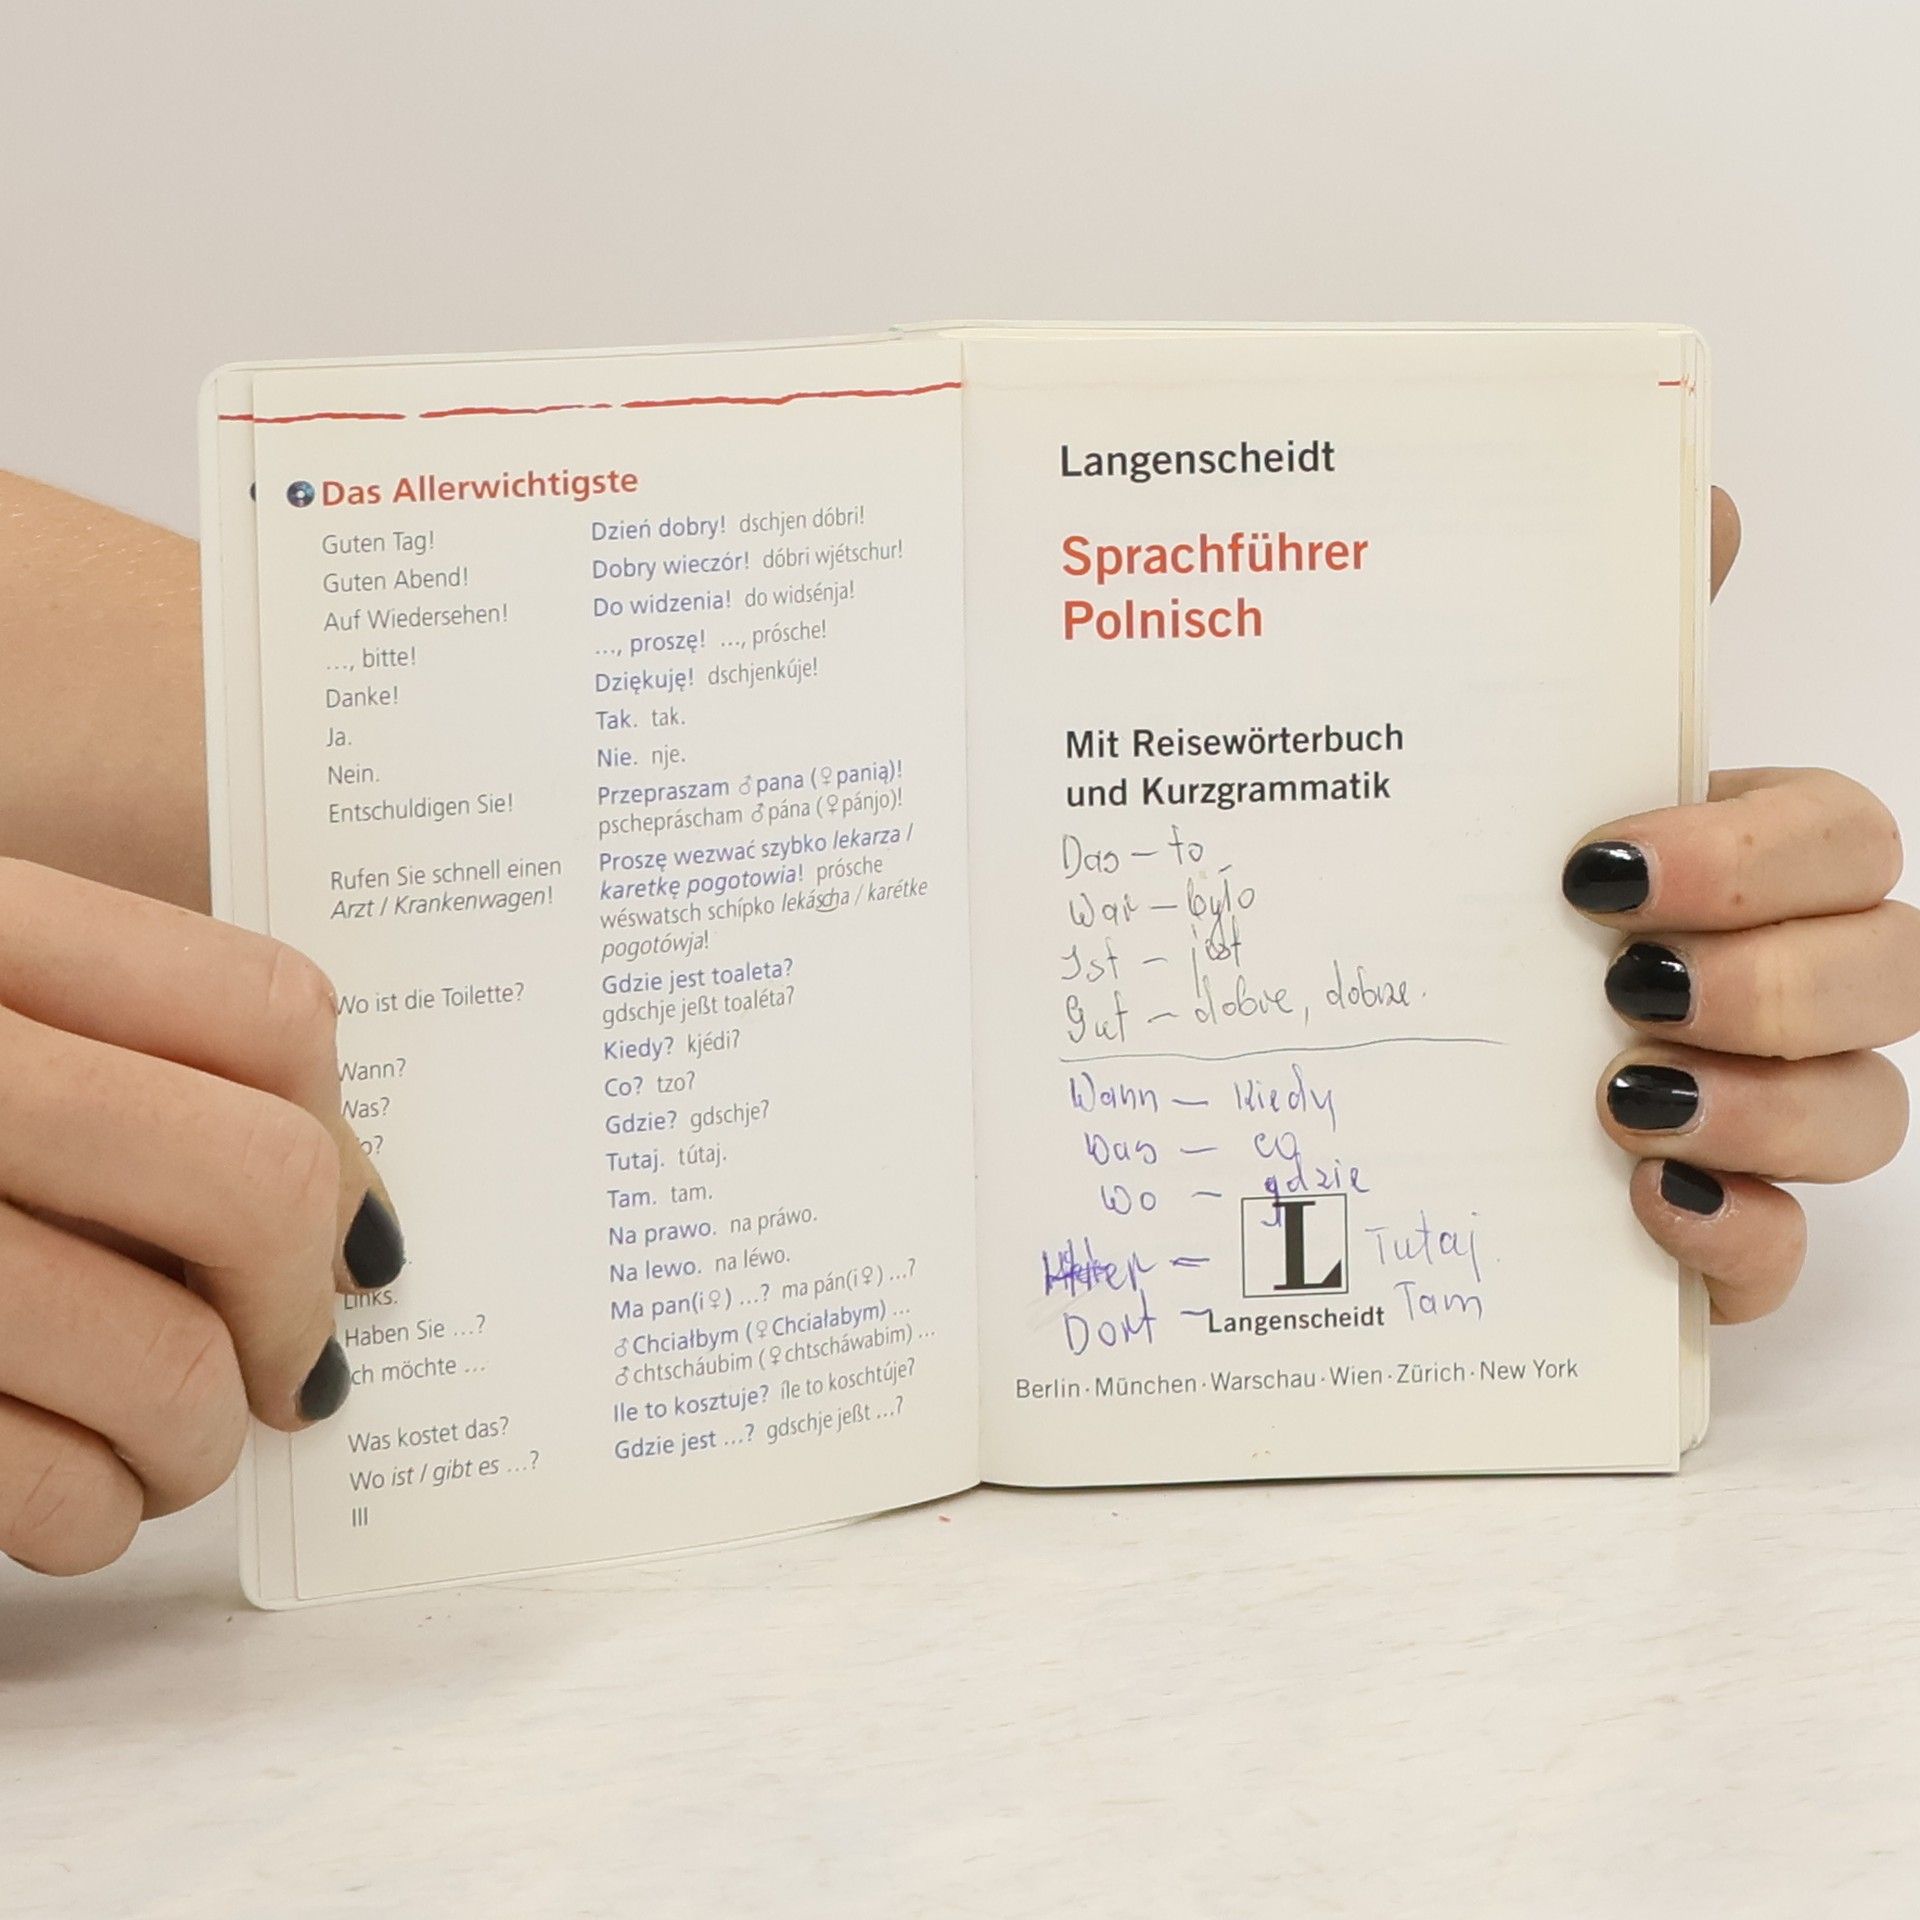 Das Allerwichtigste
Guten Tag! Dzień dobry! dschjen dóbri!
Guten Abend! Dobry wieczór! dóbri wjétschur!
Auf Wiedersehen! Do widzenia! do widsénja!
…, bitte! …, proszę! …, prósche!
Danke! Dziękuję! dschjenkúje!
Ja. Tak. tak.
Nein. Nie. nje.
Entschuldigen Sie! Przepraszam ♂ pana (♀ panią)!
pschepráscham ♂ pána (♀ pánjo)!
Rufen Sie schnell einen Proszę wezwać szybko lekarza /
Arzt / Krankenwagen! karetkę pogotowia! prósche
wéswatsch schípko lekáscha / karétke
pogotówja!
Wo ist die Toilette? Gdzie jest toaleta?
gdschje jeßt toaléta?
Wann? Kiedy? kjédi?
Was? Co? tzo?
o? Gdzie? gdschje?
Tutaj. tútaj.
Tam. tam.
Na prawo. na práwo.
Links. Na lewo. na léwo.
Haben Sie …? Ma pan(i♀) …? ma pán(i♀) …?
ch möchte … ♂ Chciałbym (♀ Chciałabym) …
♂ chtscháubim (♀ chtscháwabim) …
Was kostet das? Ile to kosztuje? íle to koschtúje?
Wo ist / gibt es …? Gdzie jest …? gdschje jeßt …?
III
Langenscheidt
Sprachführer
Polnisch
Mit Reisewörterbuch
und Kurzgrammatik
Das – to
War – było
Ist – jest
Gut – dobre, dobrze.
Wann – Kiedy
Was – co
Wo – gdzie
– Tutaj.
Dort – Tam
L
Langenscheidt
Berlin · München · Warschau · Wien · Zürich · New York